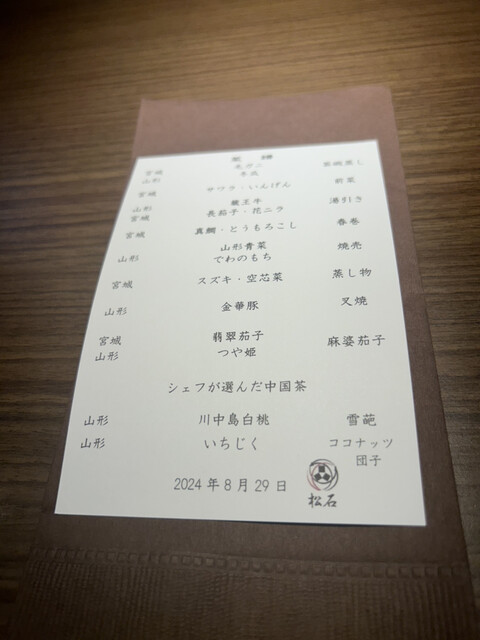 菜 譜
宮城 毛ガニ 茶碗蒸し
山形 冬瓜
宮城 サワラ・いんげん 前菜
山形 蔵王牛 湯引き
宮城 長茄子・花ニラ
宮城 真鯛・とうもろこし 春巻
山形青菜 焼売
山形 でわのもち
宮城 スズキ・空芯菜 蒸し物
山形 金華豚 叉焼
宮城 翡翠茄子 麻婆茄子
山形 つや姫
シェフが選んだ中国茶
山形 川中島白桃 雪葩
山形 いちじく ココナッツ
団子
2024年8月29日
松石